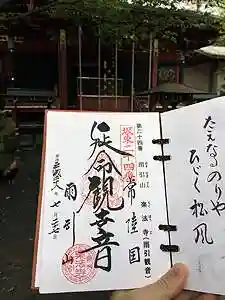 第二十四番
雨引山 楽法寺(雨引観音)
坂東二十四番
常陸国
延命観音
七月
雨引山
たえなるのりや
ひゞく松風